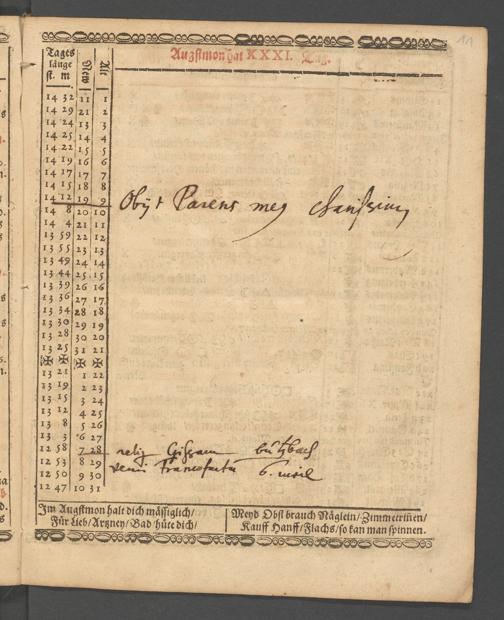 11
Augstmon hat XXXI. Tag.
Tages länge st. m. New Alt
14 32 11 1
14 29 21 2
14 26 13 3
14 25 14 4
14 22 15 5
14 19 16 6
14 17 17 7
14 15 18 8
14 12 19 9
Obijt Parens
14 8 20 10
14 4 21 11
13 59 22 12
13 55 23 13
13 49 24 14
13 44 25 15
13 39 26 16
13 36 27 17
13 34 28 18
13 30 29 19
13 28 30 20
13 25 31 21
13 22 1 22
13 19 2 23
13 15 3 24
13 12 4 25
13 8 5 26
13 3 6 27
12 58 7 28
butzbach
12 53 8 29
Francofurtu 6.
12 50 9 30
12 47 10 31
Im Augstmon halt dich mässiglich/
Für Lieb/Artzney/Bad/hüte dich/
Meyd Obst brauch Näglein/Zimmetrören/
Kauff Hanff/Flachs/so kan man spinnen.